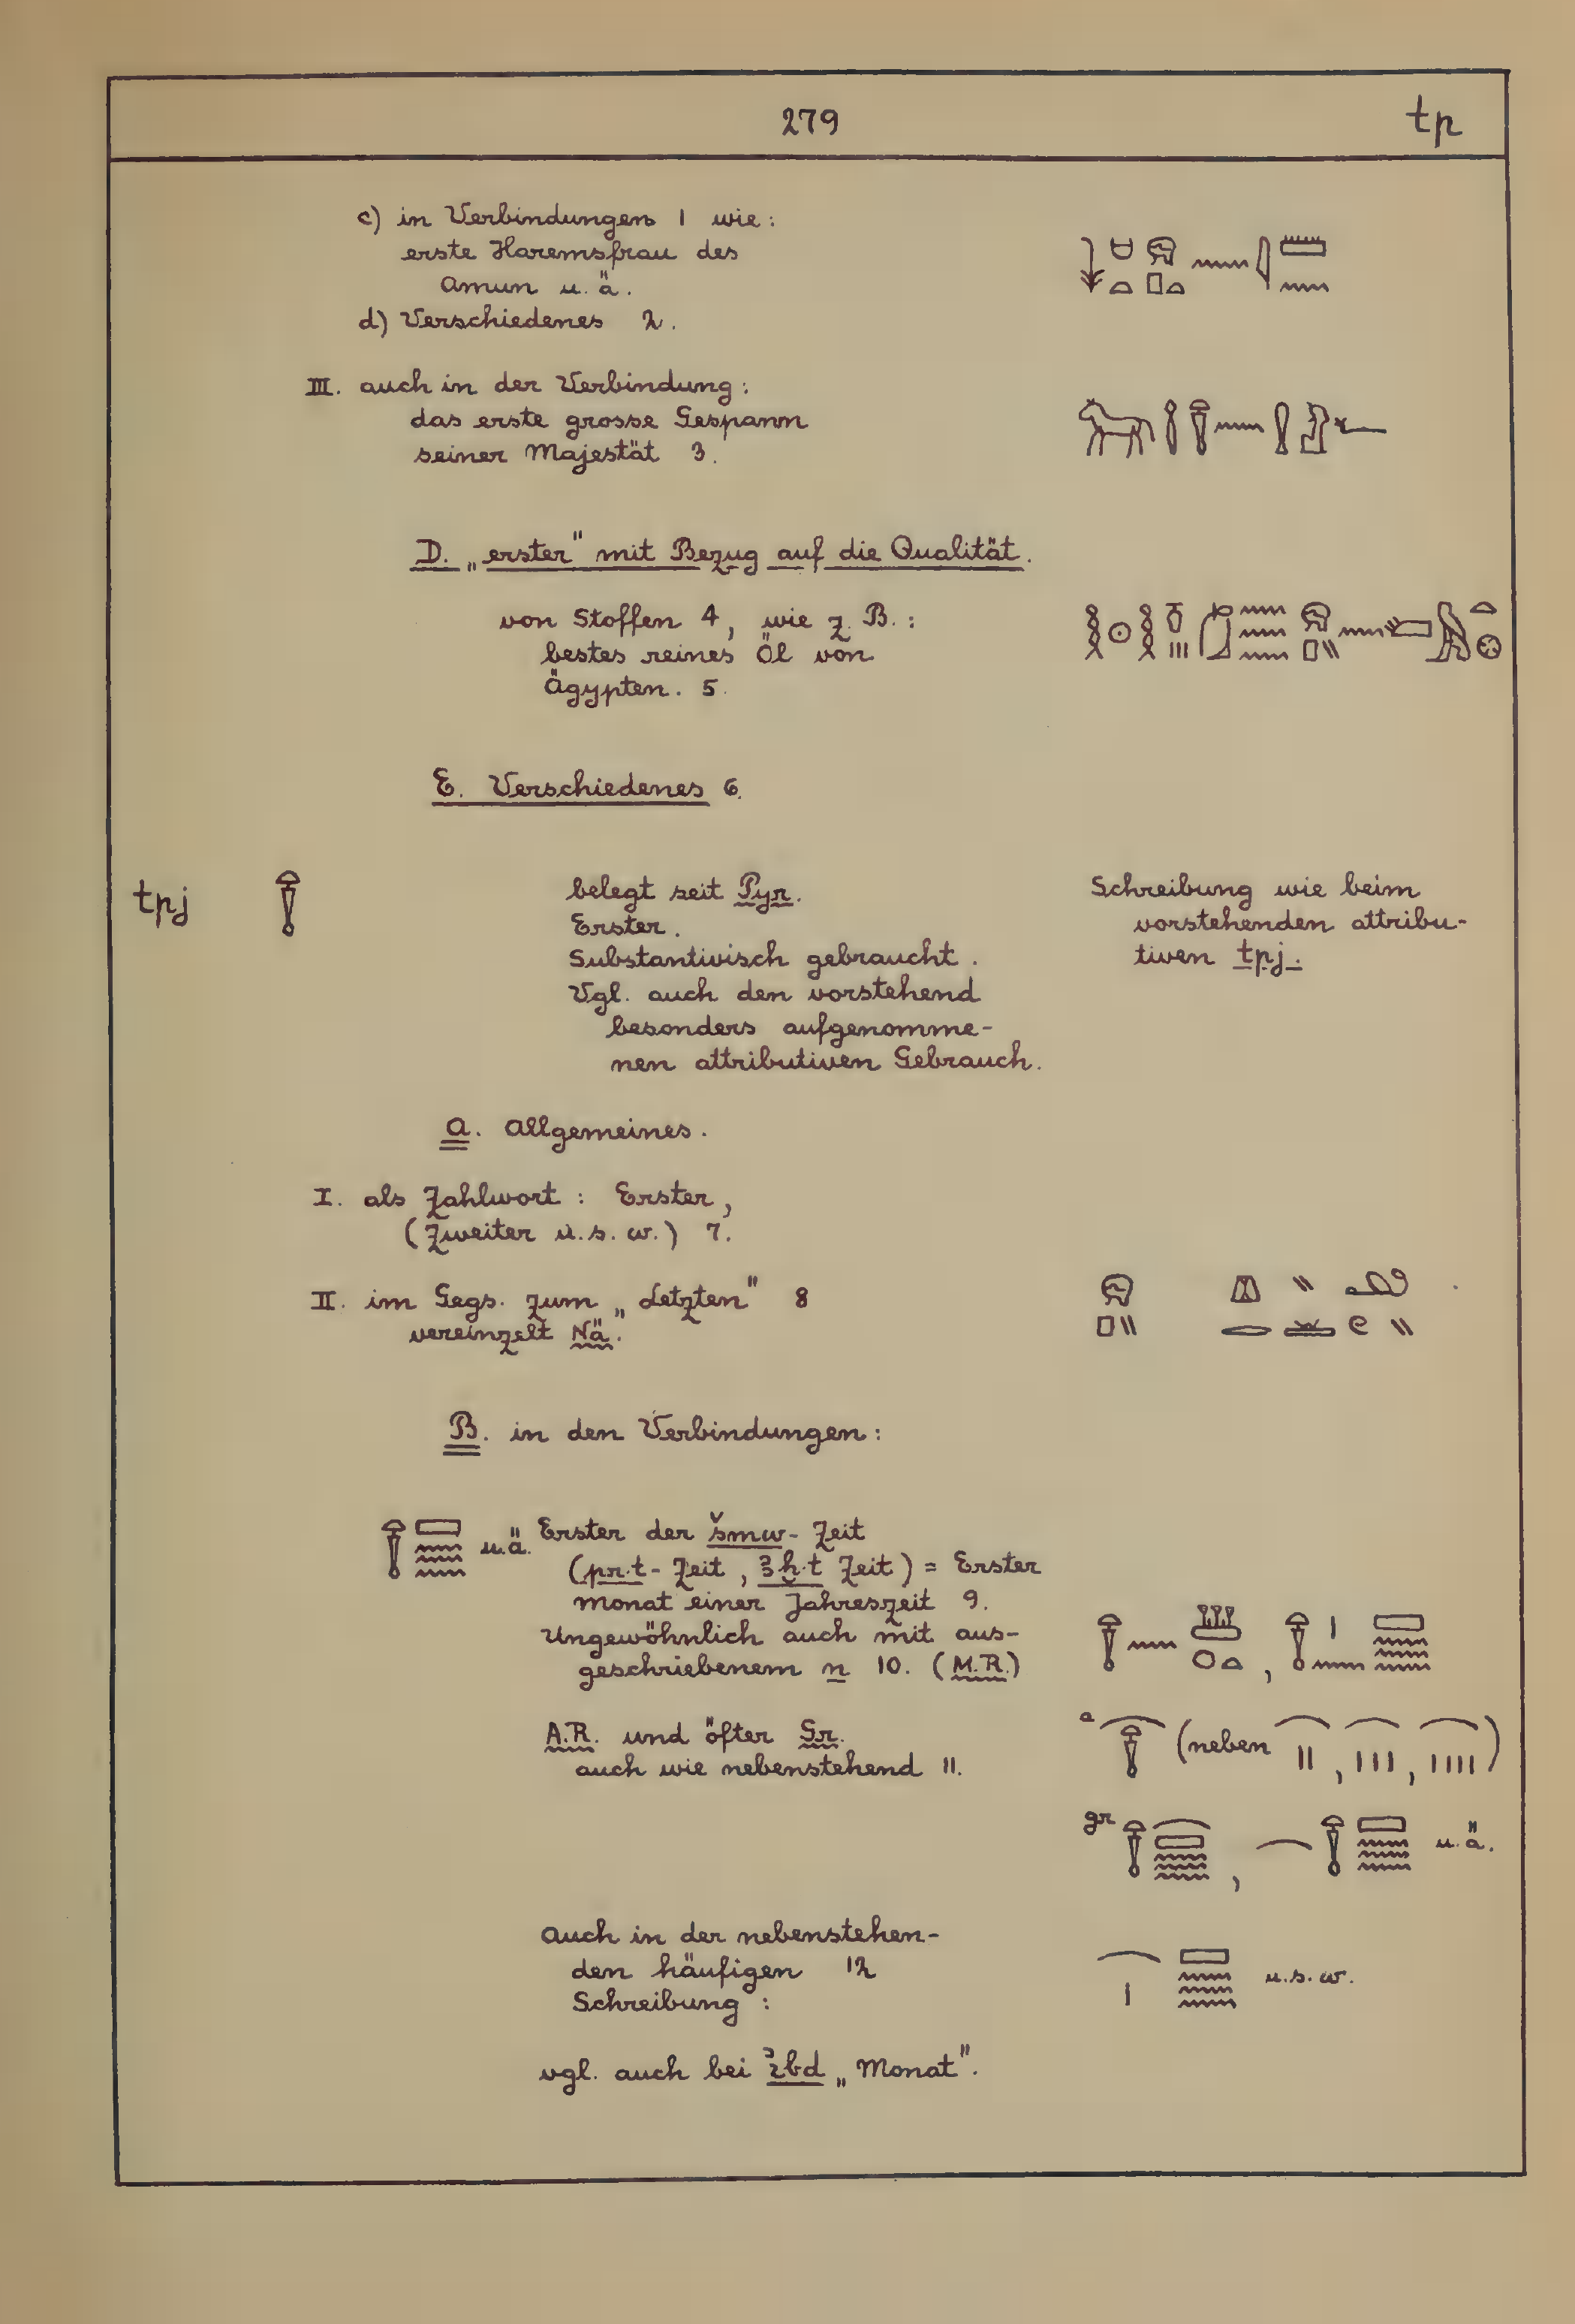 279 tp
c) in Verbindungen 1 wie:
erste Haremsfrau des
Amun u. ä.
d) Verschiedenes 2.
III. auch in der Verbindung:
das erste grosse Gespann
seiner Majestät 3.
D. „erster" mit Bezug auf die Qualität.
von Stoffen 4, wie z. B.:
bestes reines Öl von
Ägypten. 5.
E. Verschiedenes 6.
tpj
belegt seit Pyr.
Erster.
Substantivisch gebraucht.
Vgl. auch den vorstehend
besonders aufgenomme-
nen attributiven Gebrauch.
Schreibung wie beim
vorstehenden attribu-
tiven tpj.
A. Allgemeines.
I. als Zahlwort: Erster,
(Zweiter u.s.w.) 7.
II. im Gegs. zum „Letzten" 8
vereinzelt Nä.
B. in den Verbindungen:
u.ä. Erster der šmw-Zeit
(pr.t-Zeit, ꜣḫ.t Zeit) = Erster
Monat einer Jahreszeit 9.
Ungewöhnlich auch mit aus-
geschriebenem n 10. (M.R.)
A.R. und öfter Gr.
auch wie nebenstehend 11.
a (neben , , )
gr , u. ä.
Auch in der nebenstehen-
den häufigen 12
Schreibung:
u.s.w.
vgl. auch bei ꜣbd „Monat".